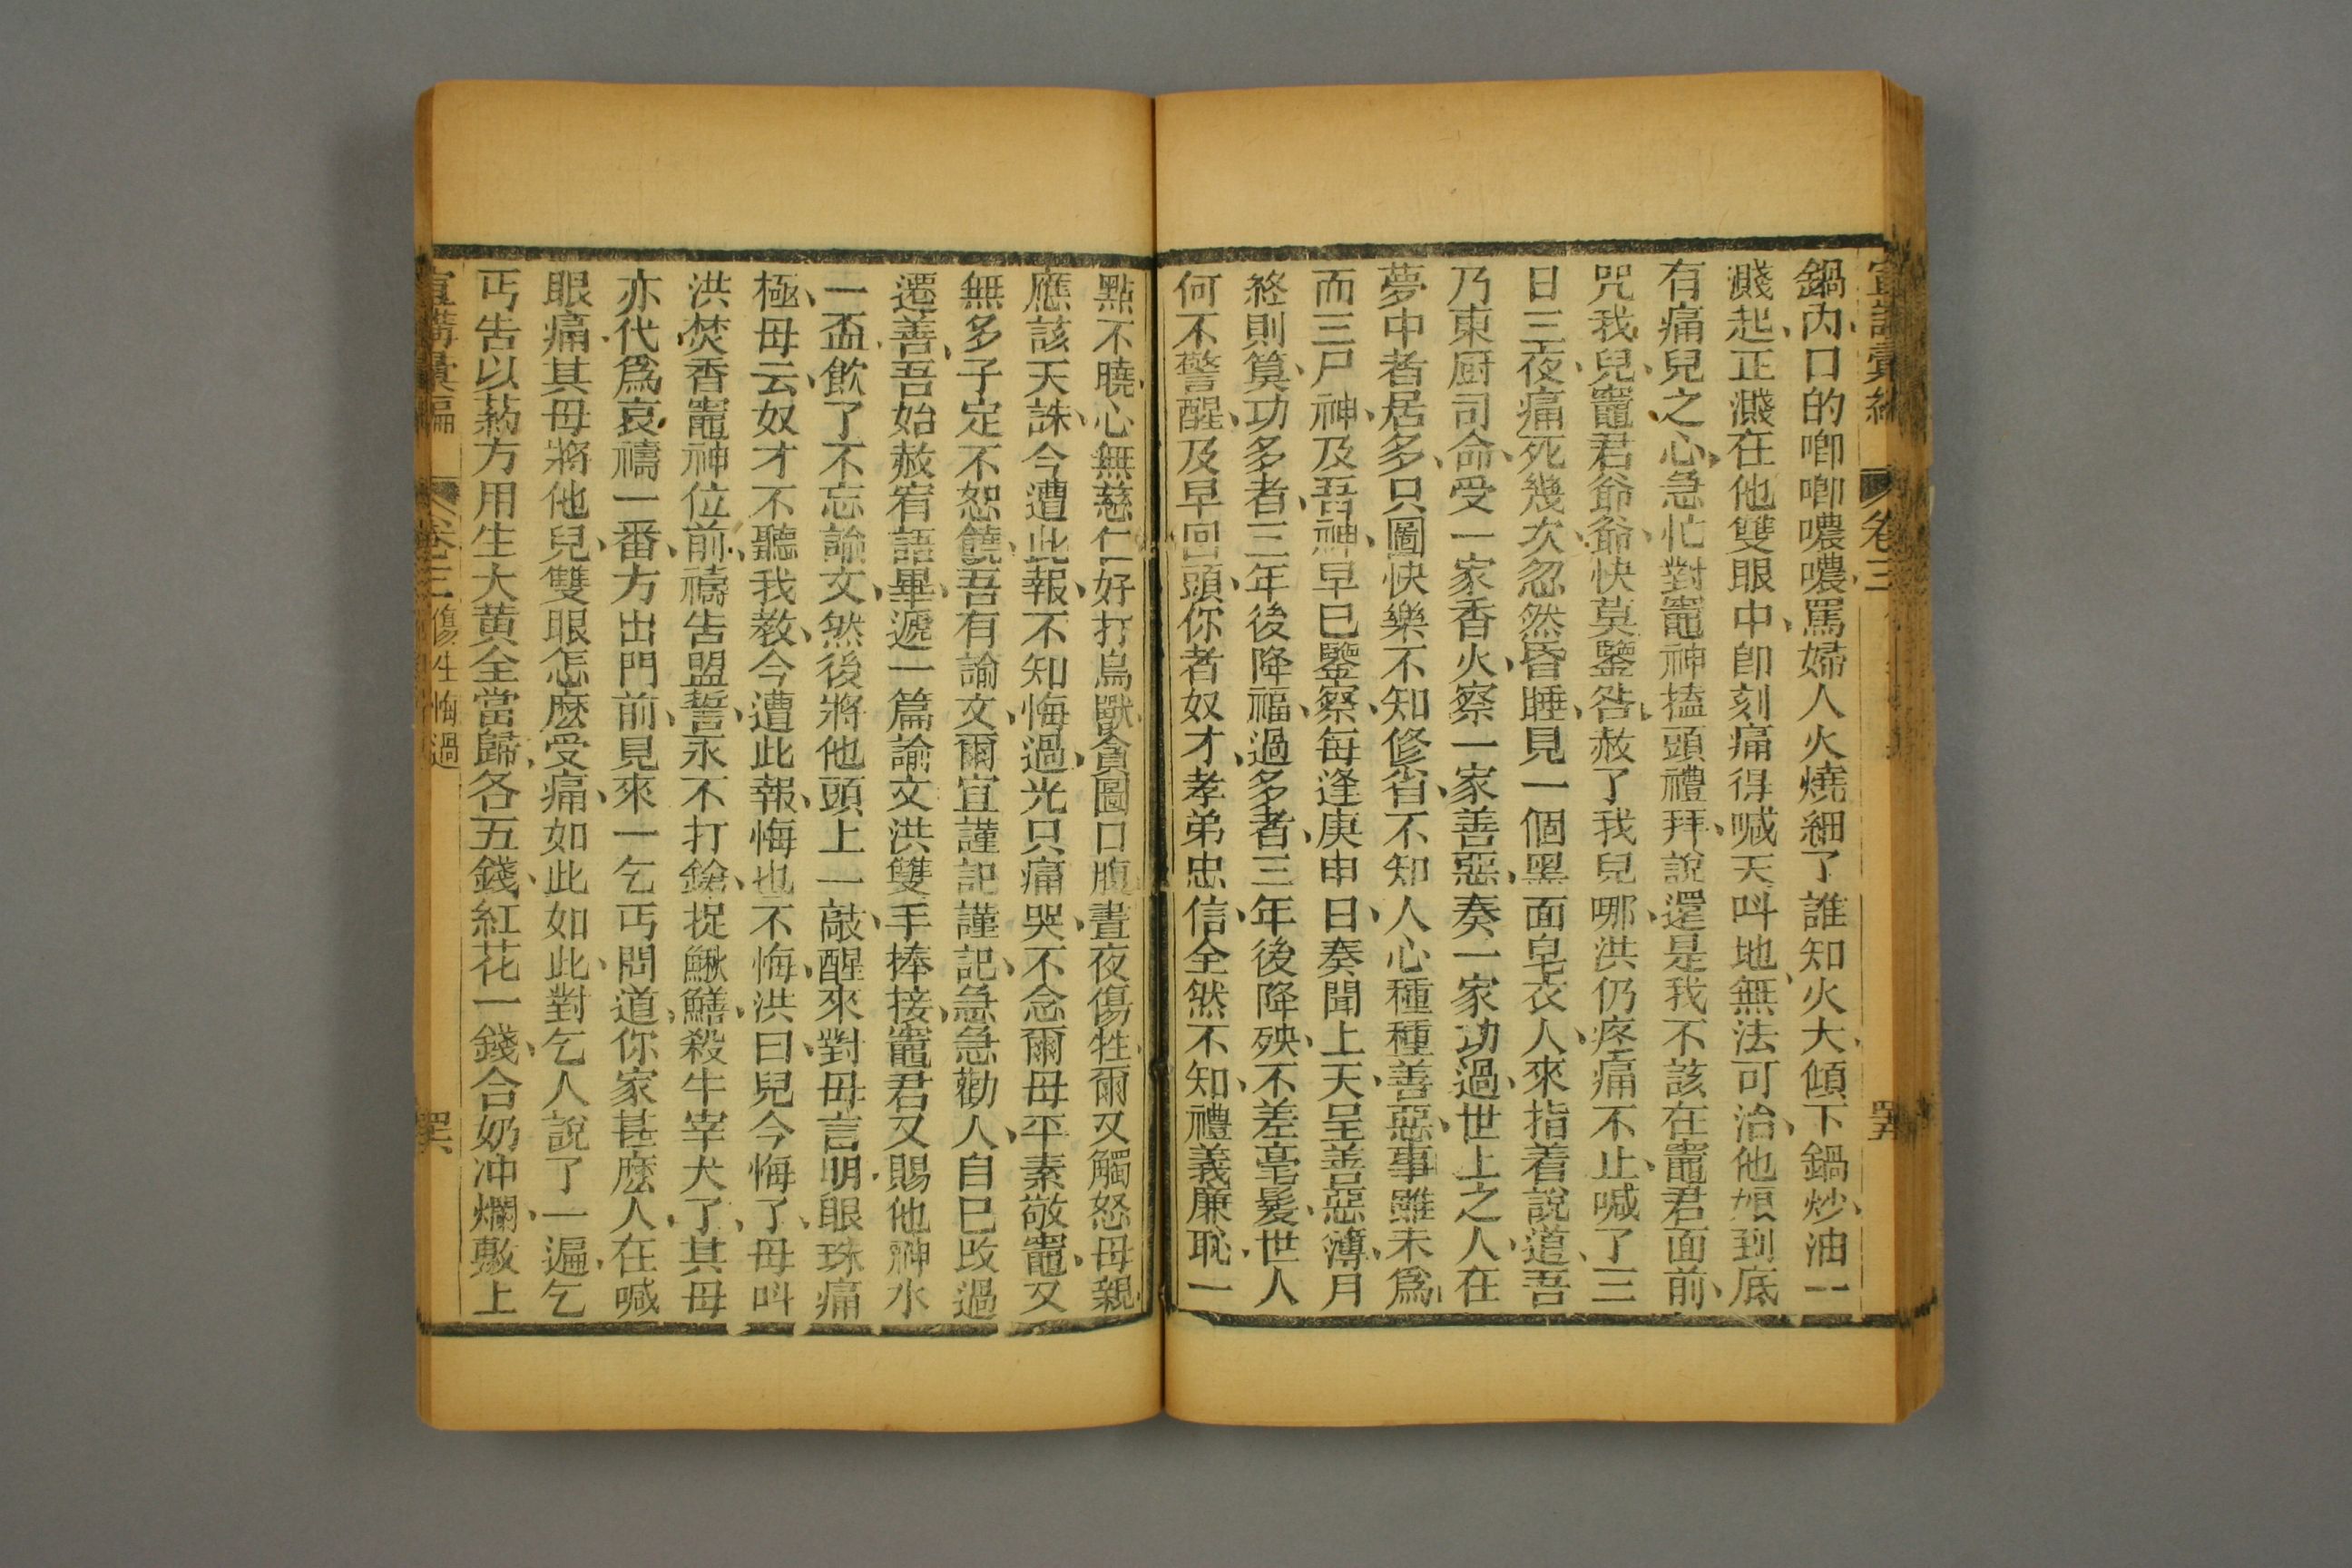 宣講彙編 卷三 罢五
鍋內口的唧唧噥噥罵婦人火燒細了誰知火大傾下鍋炒油一
濺起正濺在他雙眼中卽刻痛得喊天呌地無法可治他娘到底
有痛兒之心急忙對竈神搕頭禮拜說還是我不該在竈君面前
咒我兒竈君爺爺快莫鑒咎赦了我兒哪洪仍疼痛不止喊了三
日三夜痛死幾次忽然昏睡見一個黑面皂衣人來指着說道吾
乃東厨司命受一家香火察一家善惡奏一家功過世上之人在
夢中者居多只圖快樂不知修省不知人心種種善惡事雖未爲
而三尸神及吾神早已鑒察每逢庚申日奏聞上天呈善惡簿月
終則算功多者三年後降福過多者三年後降殃不差毫髮世人
何不警醒及早回頭你者奴才孝弟忠信全然不知禮義廉恥一
點不曉心無慈仁好打鳥獸貪圖口腹晝夜傷牲爾又觸怒母親
應該天誅今遭此報不知悔過光只痛哭不念爾母平素敬竈又
無多子定不恕饒吾有諭文爾宜謹記謹記急急勸人自已攺過
遷善吾始赦宥語畢遞一篇諭文洪雙手捧接竈君又賜他神水
一盃飮了不忘諭文然後將他頭上一敲醒來對母言明眼珠痛
極母云奴才不聽我教今遭此報悔也不悔洪曰兒今悔了母呌
洪焚香竈神位前禱告盟誓永不打鎗捉鰍鱔殺牛宰犬了其母
亦代爲哀禱一番方出門前見來一乞丐問道你家甚麽人在喊
眼痛其母將他兒雙眼怎麽受痛如此如此對乞人說了一遍乞
丐告以葯方用生大黃全當歸各五錢紅花一錢合奶冲爛敷上
宣講彙編 卷三 傷生悔過 罢六